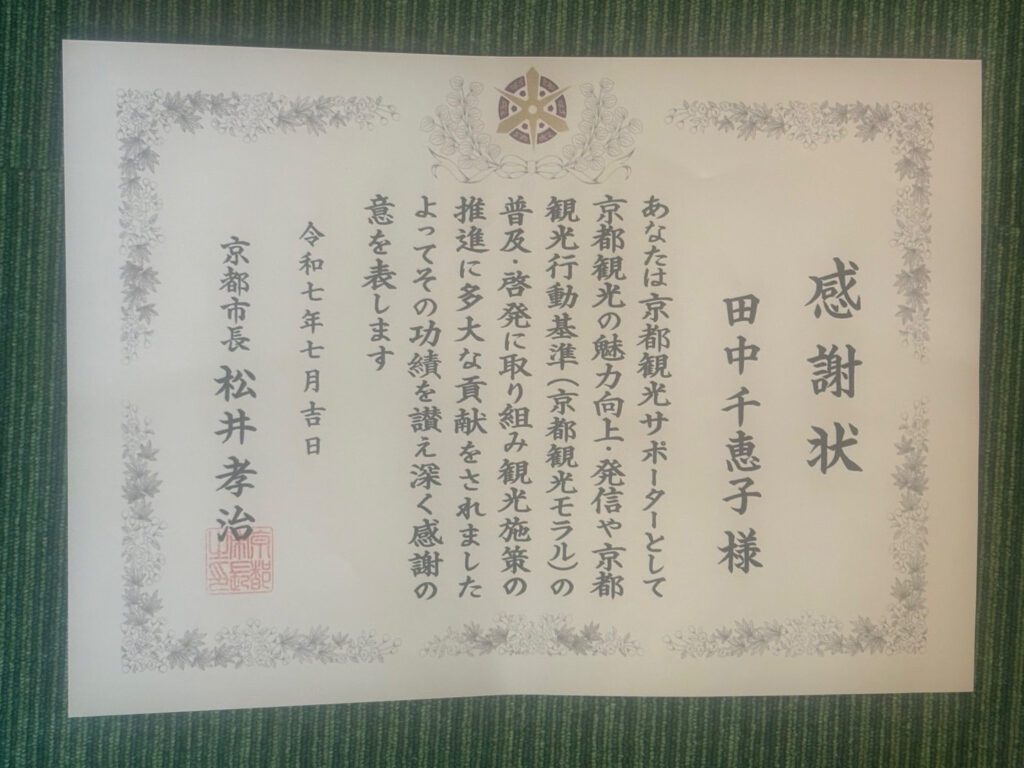 感謝状
田中千恵子様
あなたは京都観光サポーターとして
京都観光の魅力向上・発信や京都
観光行動基準(京都観光モラル)の
普及・啓発に取り組み観光施策の
推進に多大な貢献をされました
よってその功績を讃え深く感謝の
意を表します
令和七年七月吉日
京都市長 松井孝治
京都市長之印